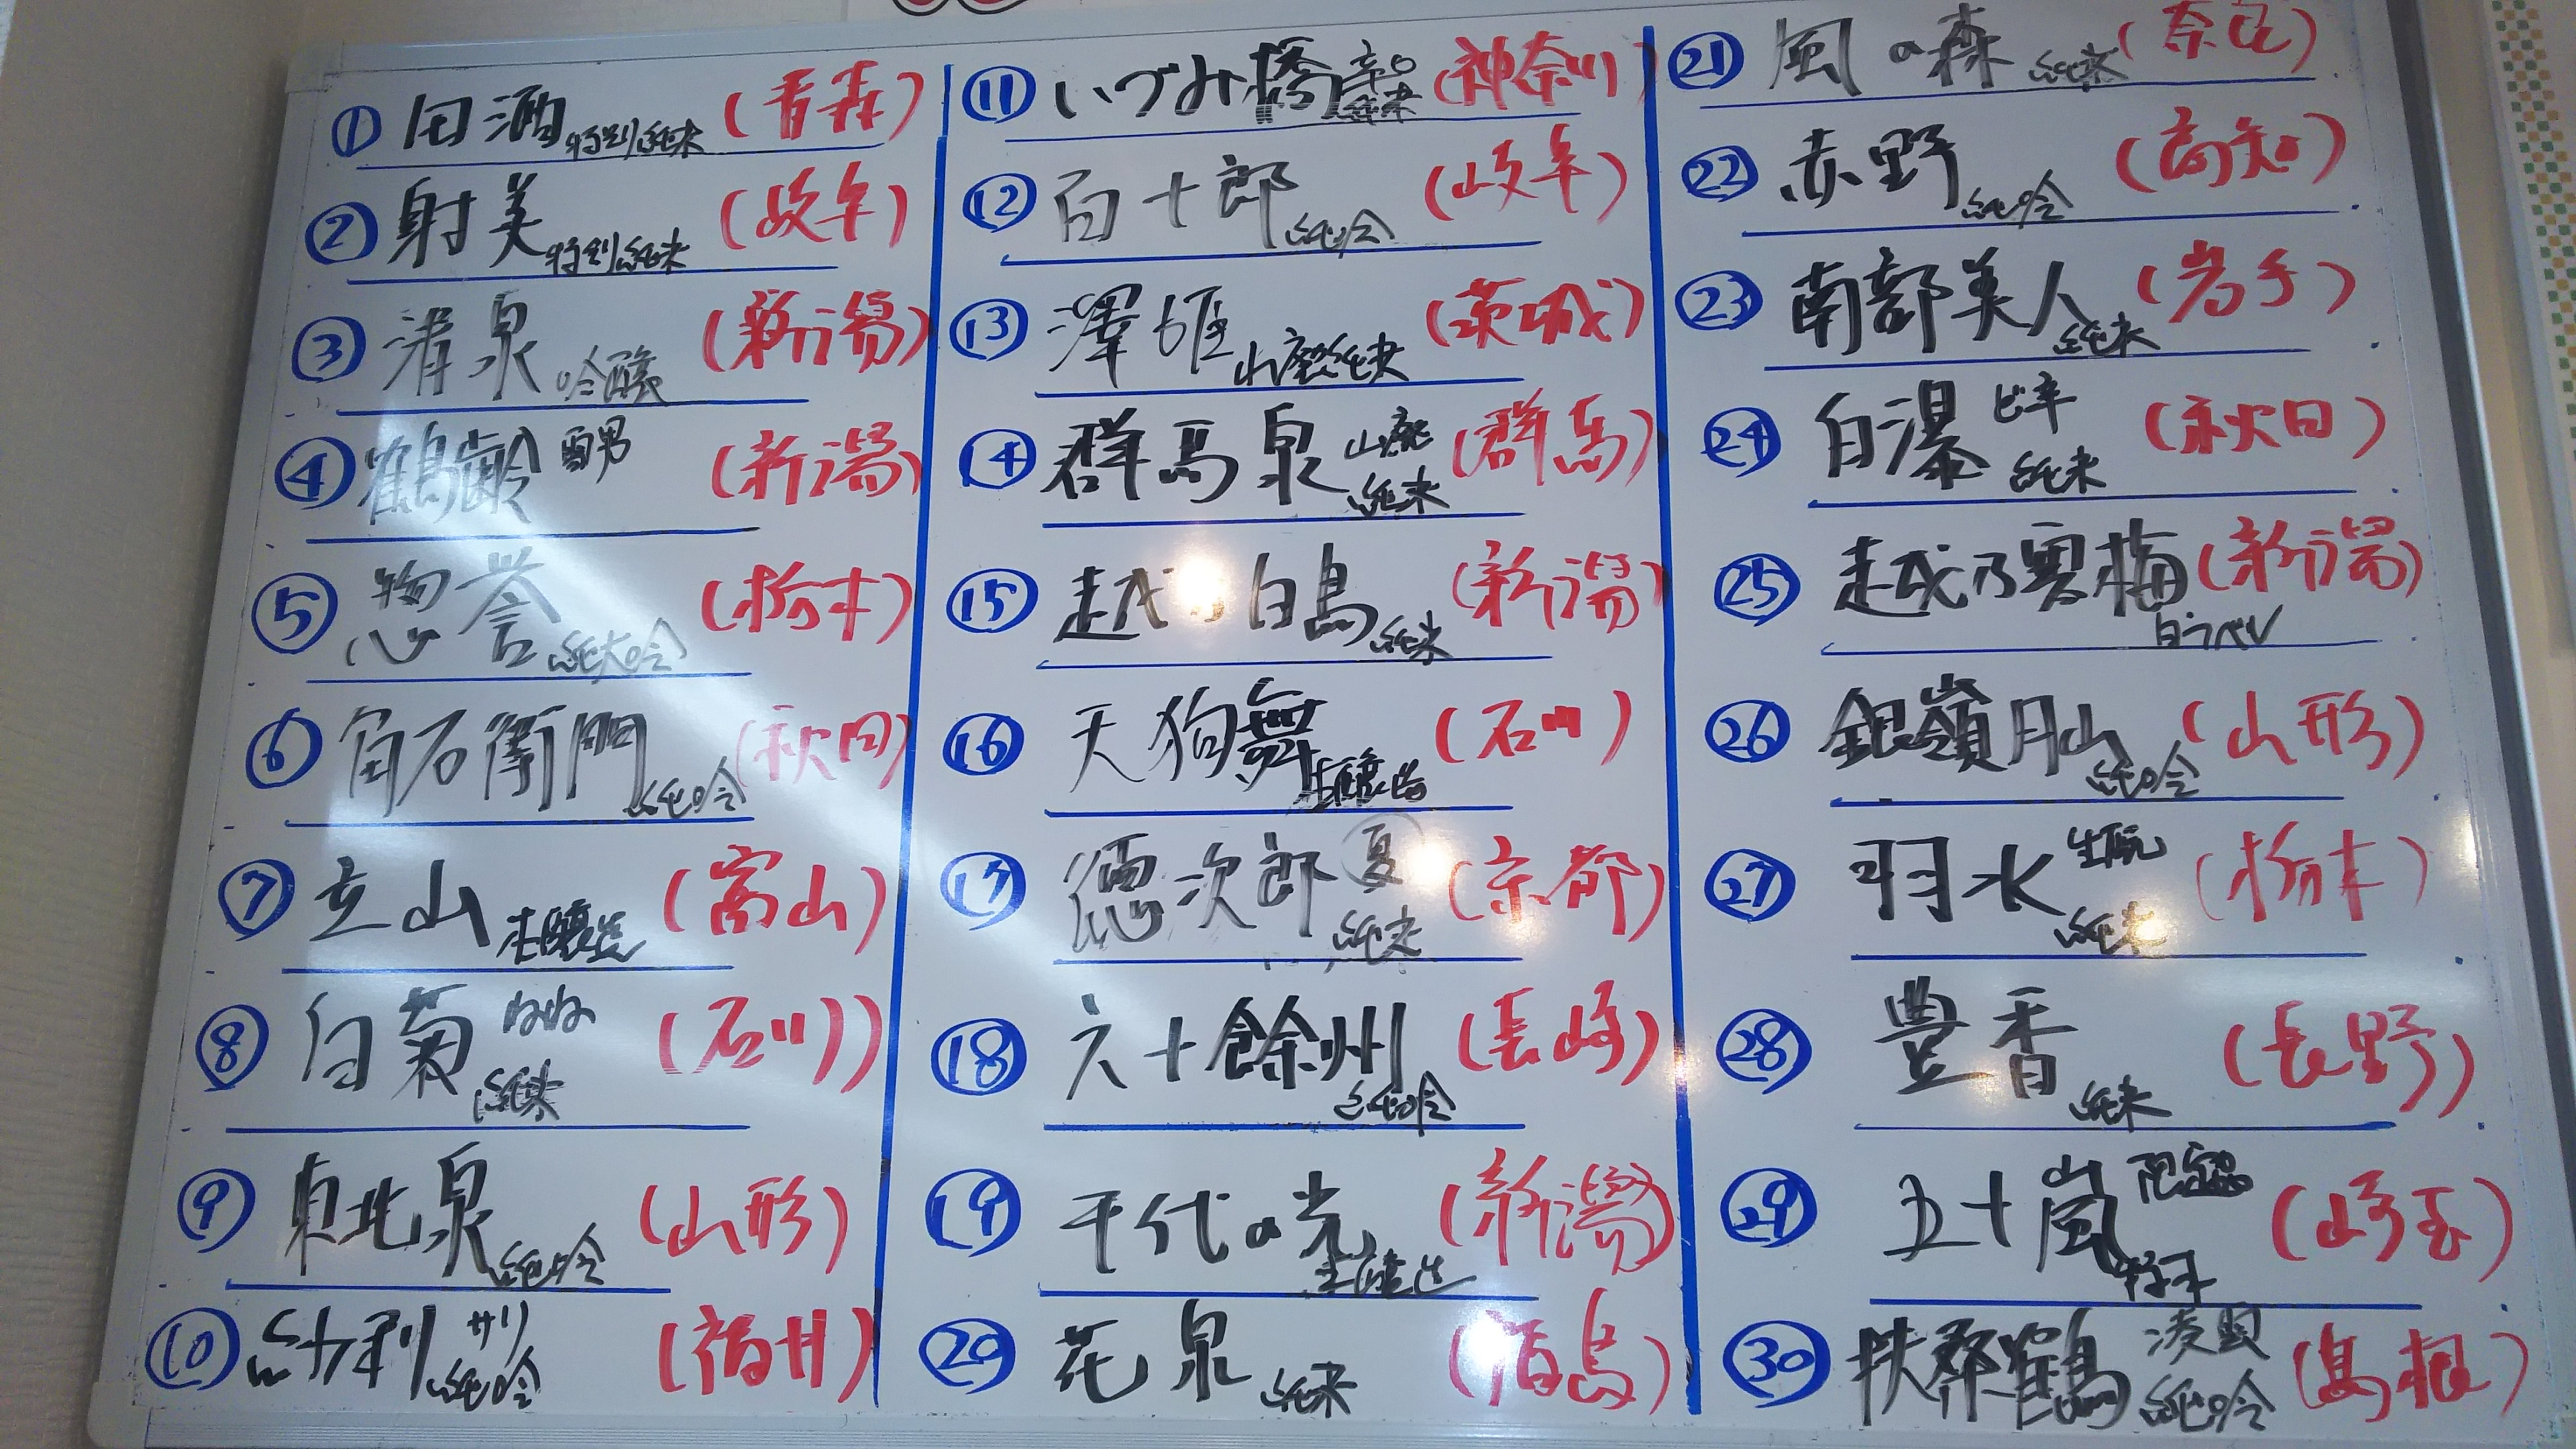 ① 田酒 特別純米 (青森)
② 射美 特別純米 (岐阜)
③ 清泉 吟醸 (新潟)
④ 鶴齢 雪男 (新潟)
⑤ 惣誉 純大吟 (栃木)
⑥ 角右衛門 純吟 (秋田)
⑦ 立山 本醸造 (富山)
⑧ 白菊 純米 (石川)
⑨ 東北泉 純吟 (山形)
⑩ 紗利 サリ 純吟 (福井)
⑪ いづみ橋 辛口 純米 (神奈川)
⑫ 百十郎 純吟 (岐阜)
⑬ 澤姫 山廃純米 (茨城)
⑭ 群馬泉 山廃 純米 (群馬)
⑮ 越乃白鳥 純米 (新潟)
⑯ 天狗舞 (石川)
⑰ 徳次郎 夏 純米 (京都)
⑱ 六十餘州 純吟 (長崎)
⑲ 千代の光 本醸造 (新潟)
⑳ 花泉 純米 (福島)
㉑ 風の森 純米 (奈良)
㉒ 赤野 純吟 (高知)
㉓ 南部美人 純米 (岩手)
㉔ 白瀑 ど辛 純米 (秋田)
㉕ 越乃寒梅 白ラベル (新潟)
㉖ 銀嶺月山 純吟 (山形)
㉗ 羽水 生酛 純米 (栃木)
㉘ 豊香 純米 (長野)
㉙ 五十嵐 (埼玉)
㉚ 扶桑鶴 純吟 (島根)